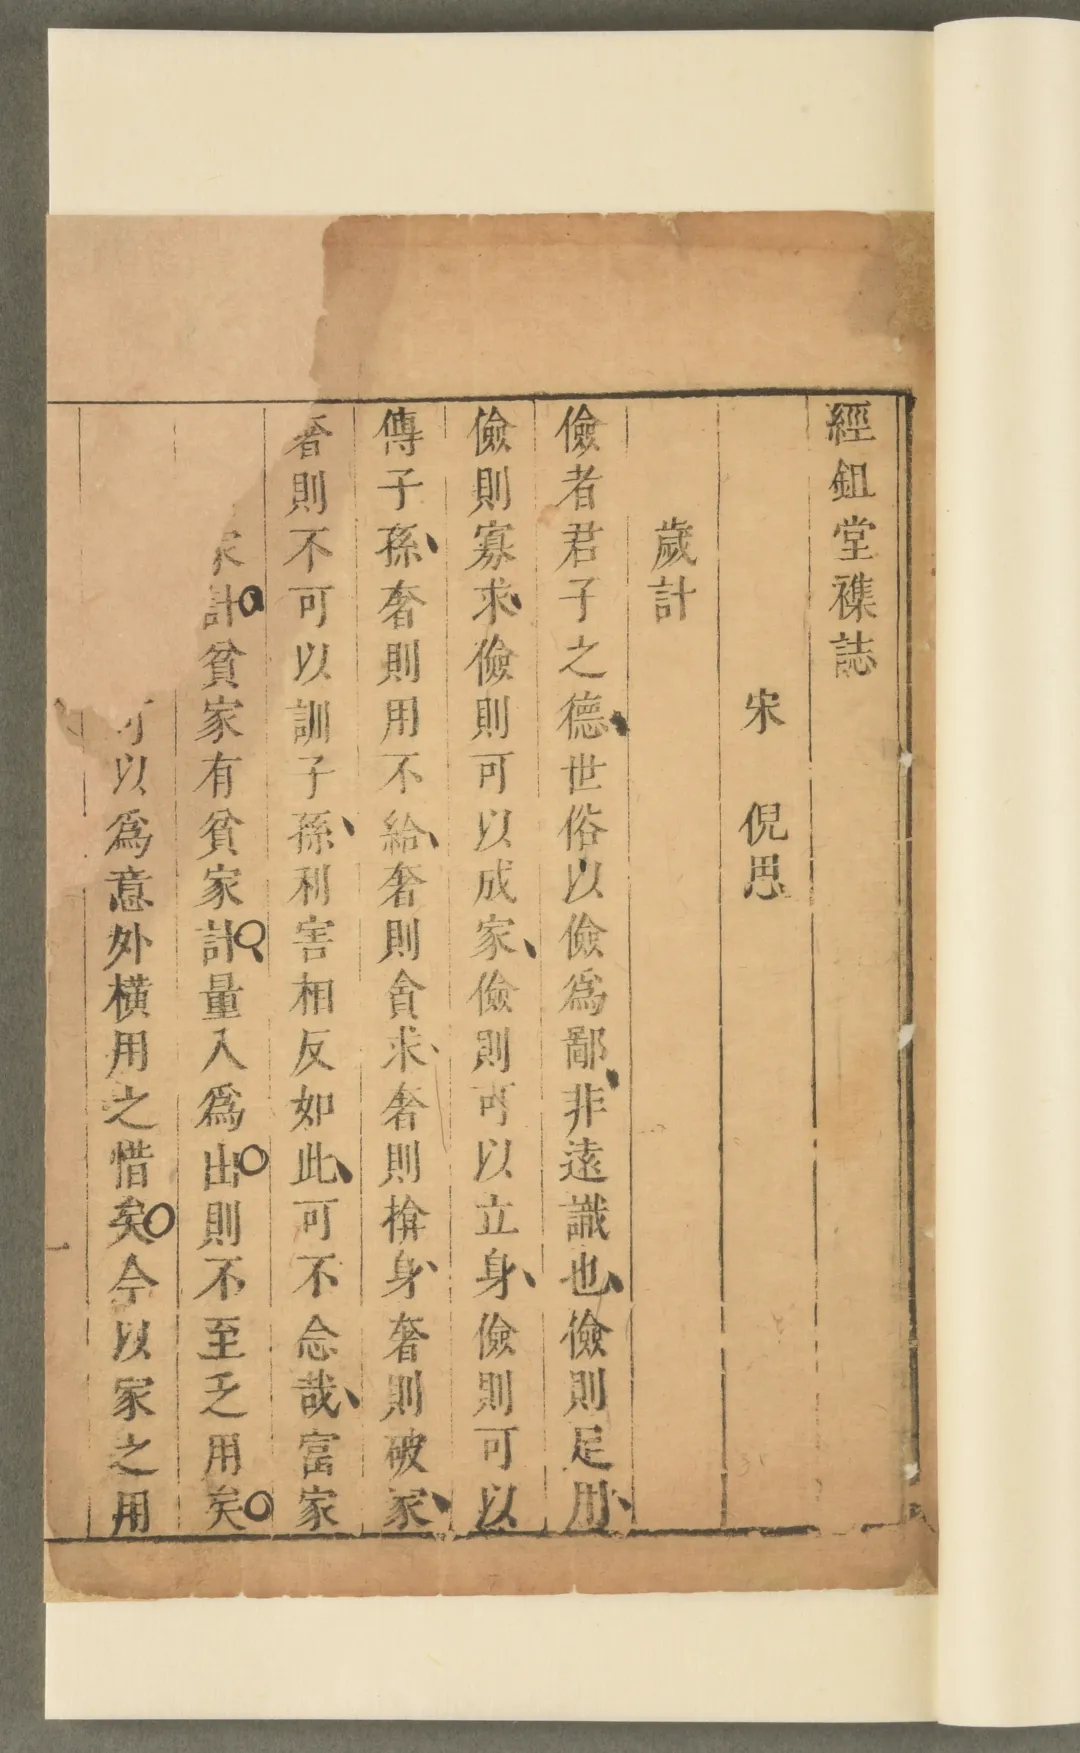 經鉏堂襍誌
宋 倪思
歲計
儉者君子之德世俗以儉爲鄙非遠識也儉則足用
儉則寡求儉則可以成家儉則可以立身儉則可以
傳子孫奢則用不給奢則貪求奢則揜身奢則破家
奢則不可以訓子孫利害相反如此可不念哉富家
家計貧家有貧家計量入爲出則不至乏用矣
可以爲意外橫用之惜矣今以家之用